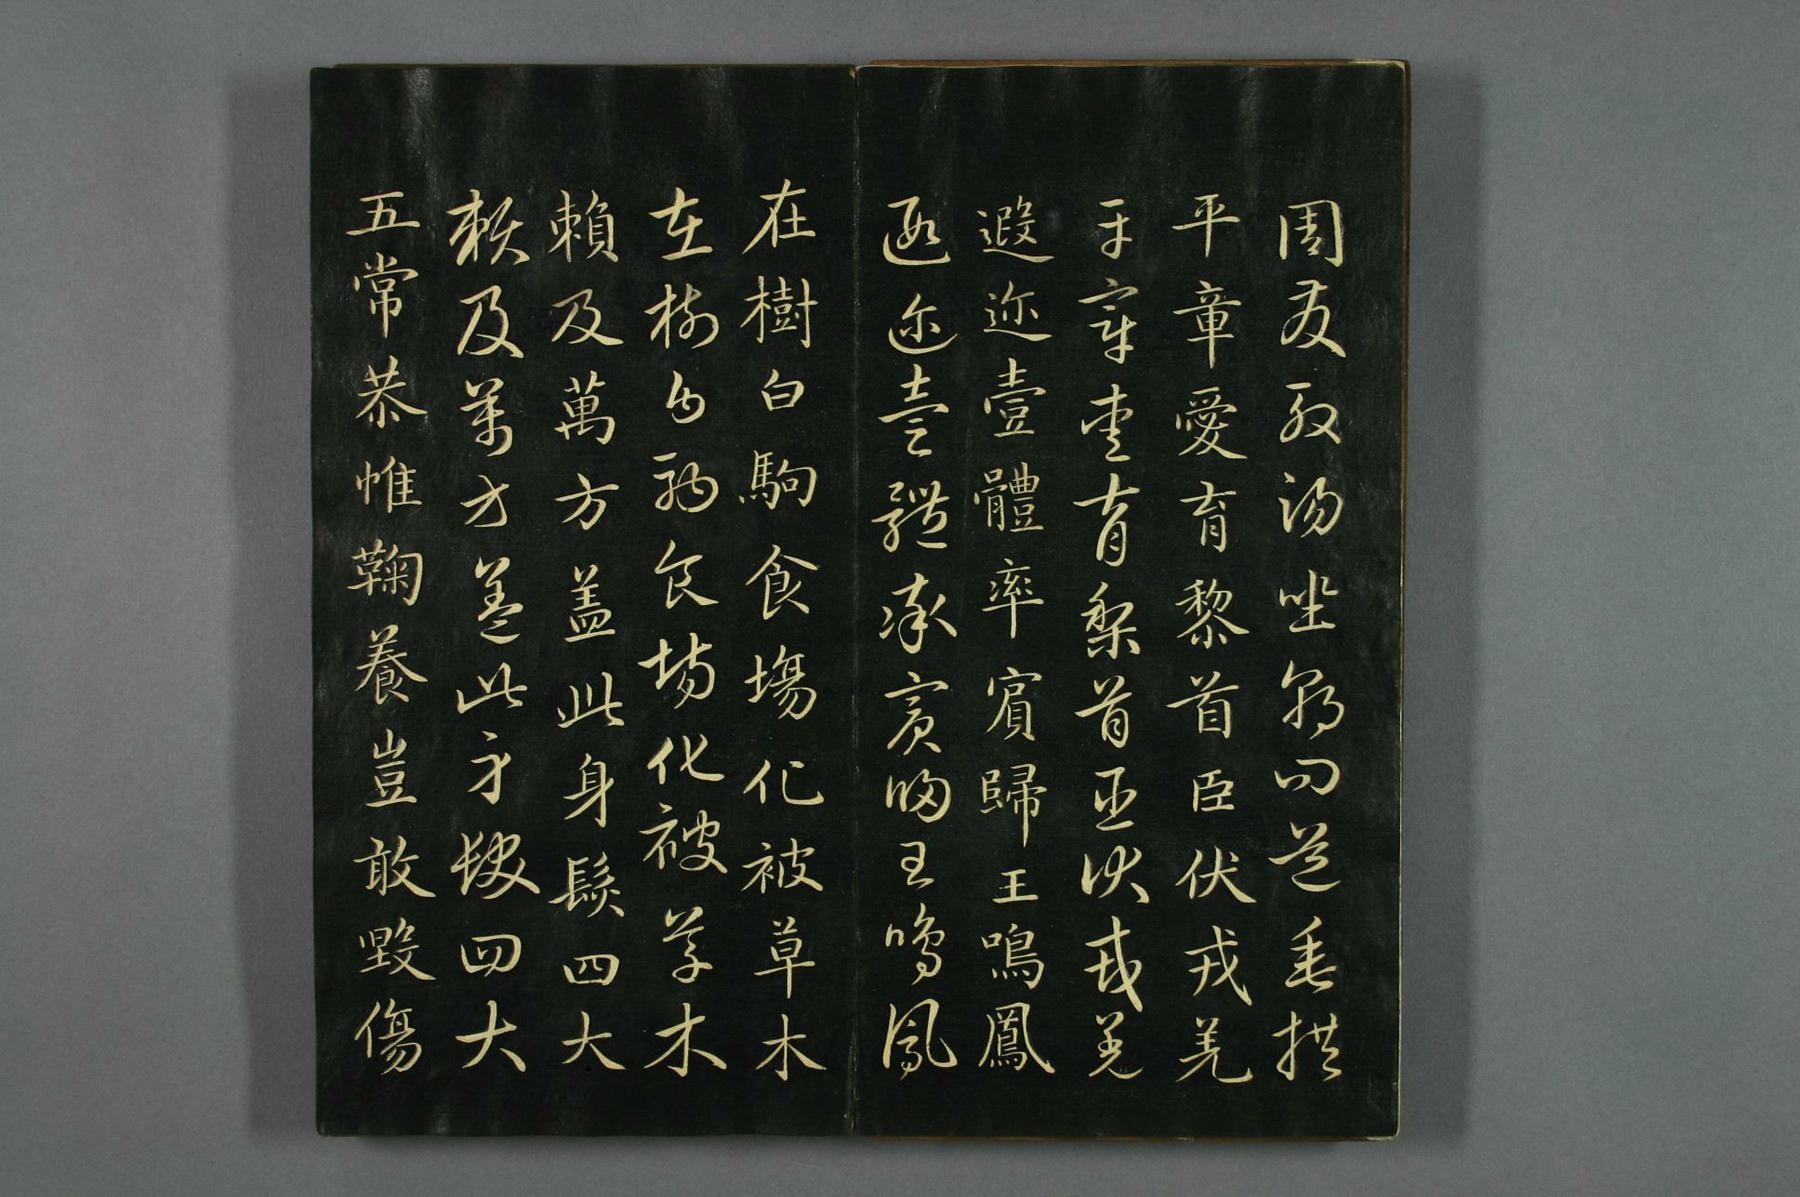 周發殷湯坐朝問道垂拱
平章愛育黎首臣伏戎羌
平章愛育黎首臣伏戎羌
遐迩壹體率賓歸王鳴鳳
遐迩壹體率賓歸王鳴鳳
在樹白駒食場化被草木
在樹白駒食場化被草木
賴及萬方蓋此身髮四大
賴及萬方蓋此身髮四大
五常恭惟鞠養豈敢毀傷